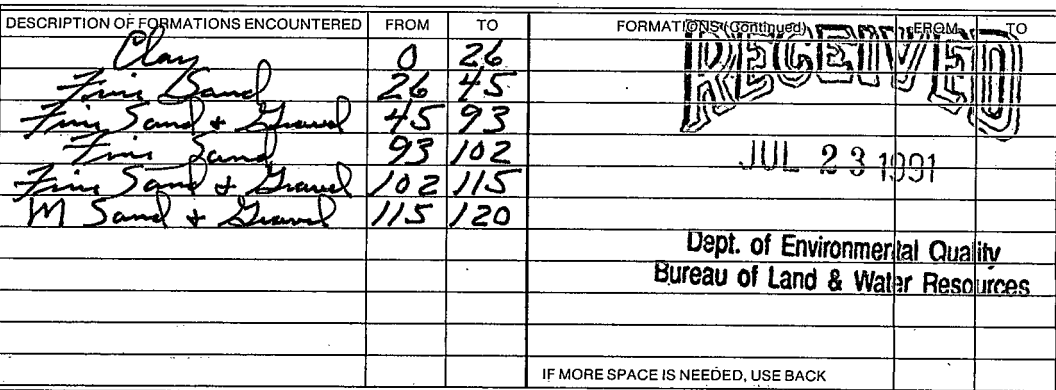 DESCRIPTION OF FORMATIONS ENCOUNTERED FROM TO
Clay 0 26
Fine Sand 26 45
Fine Sand & Gravel 45 93
Fine Sand 93 102
Fine Sand & Gravel 102 115
M Sand & Gravel 115 120
FORMATIONS (Continued) FROM TO
RECEIVED
JUL 23 1991
Dept. of Environmental Quality
Bureau of Land & Water Resources
IF MORE SPACE IS NEEDED, USE BACK